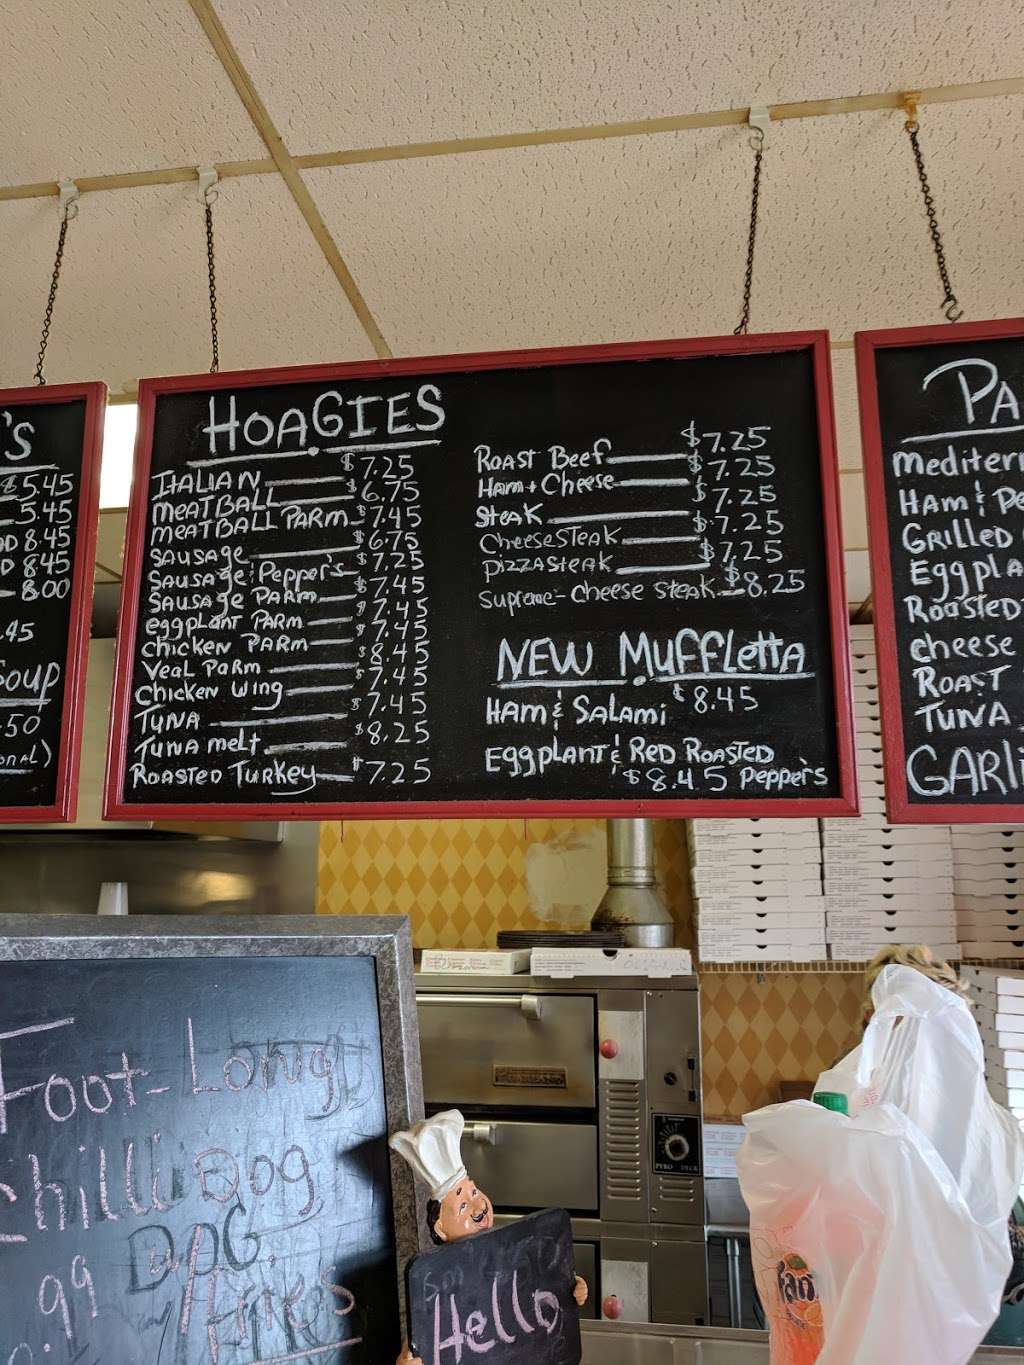 'S
$5.45
5.45
8.45
8.45
8.00
.45
Soup
.50
HOAGIES
ITALIAN $7.25
MEATBALL $6.75
MEATBALL PARM $7.45
SAUSAGE $6.75
SAUSAGE & PEPPER'S $7.25
SAUSAGE PARM $7.45
eggPLANT PARM $7.45
CHICKEN PARM $7.45
VEAL PARM $8.45
CHICKEN WING $7.45
TUNA $7.45
TUNA MELT $8.25
ROASTED TURKEY $7.25
ROAST BEEF $7.25
HAM + CHEESE $7.25
STEAK $7.25
CHEESESTEAK $7.25
PIZZASTEAK $7.25
SUPREME - CHEESE STEAK $8.25
NEW MUFFLETTA
HAM & SALAMI $8.45
EGGPLANT & RED ROASTED
$8.45 PEPPER'S
PA
MEDITERR
HAM & PE
GRILLED
EGGPLA
ROASTED
CHEESE
ROAST
TUNA
GARLI
Foot-Long
Chilli Dog
.99 w/ Fries
Hello
Fan
PYRO DECK